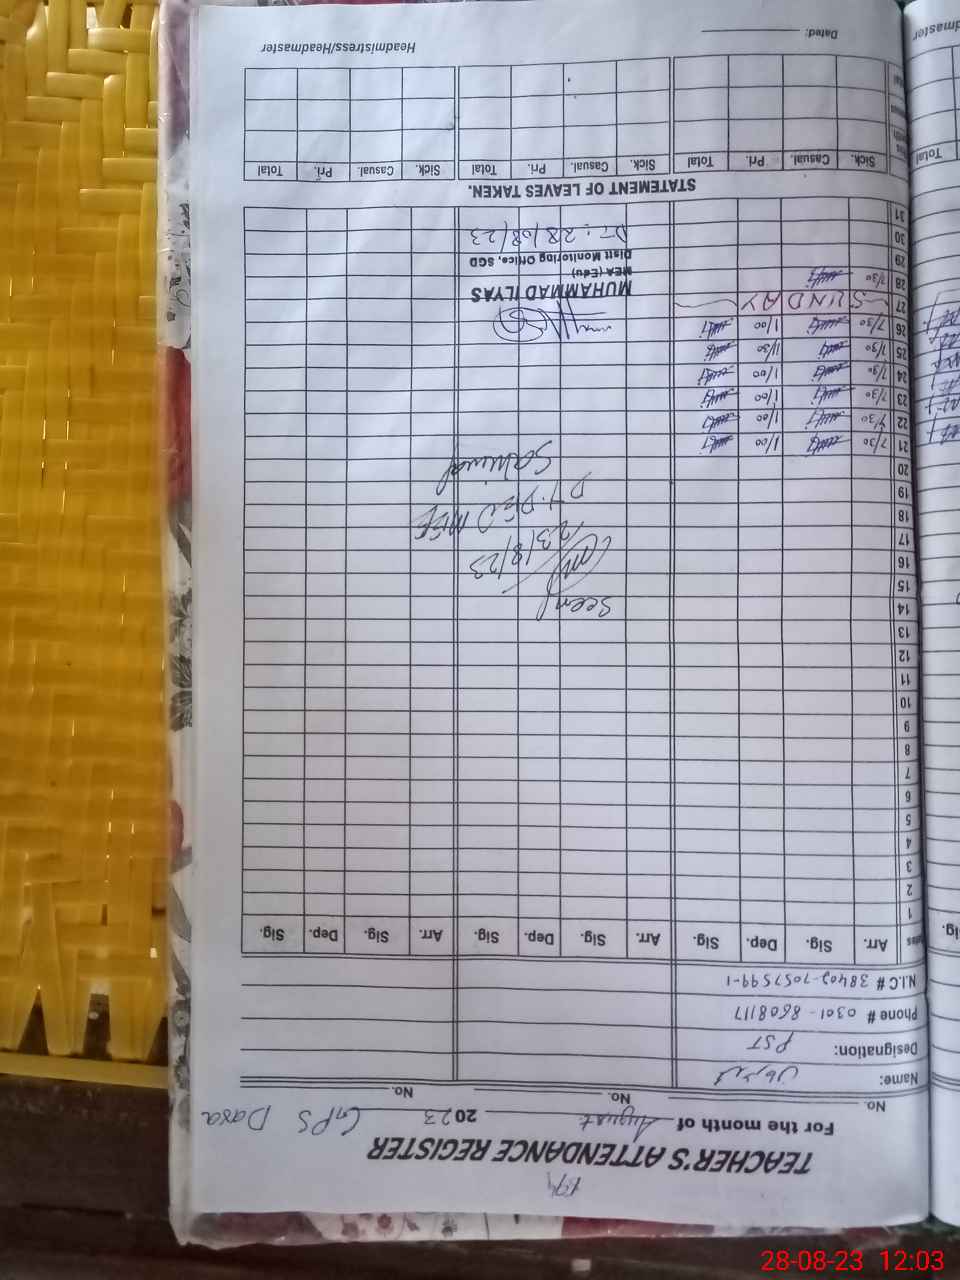 TEACHER'S ATTENDANCE REGISTER
For the month of August 2023 GPS Dasa
No. No. No.
Name:
Designation: PST
Phone # 0301-8608117
N.I.C # 38402-7057599-1
Arr. Sig. Dep. Sig. Arr. Sig. Dep. Sig. Arr. Sig. Dep. Sig.
1
2
3
4
5
6
7
8
9
10
11
12
13
14 Seen
15
16
17 23/8/23
18
19
20
21 7/30 1/00
22 7/30 1/00
23 7/30 1/00
24 7/30 1/00
25 7/30 11/30
26 7/30 1/00
27 SUNDAY
28 7/30
29
30
31
MUHAMMAD ILYAS
MEA (Edu)
Distt Monitoring Office, SGD
DT: 28/08/23
STATEMENT OF LEAVES TAKEN.
Sick. Casual. Pri. Total Sick. Casual. Pri. Total Sick. Casual. Pri. Total
Dated: Headmistress/Headmaster
Total
28-08-23 12:03